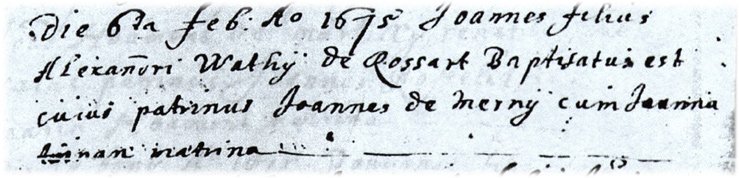 Die 6ta feb: Ao 1675 Joannes filius
Alexandri Wathy de Rossart Baptisatus est
cuius patrinus Joannes de Merny cum Joanna
matrina